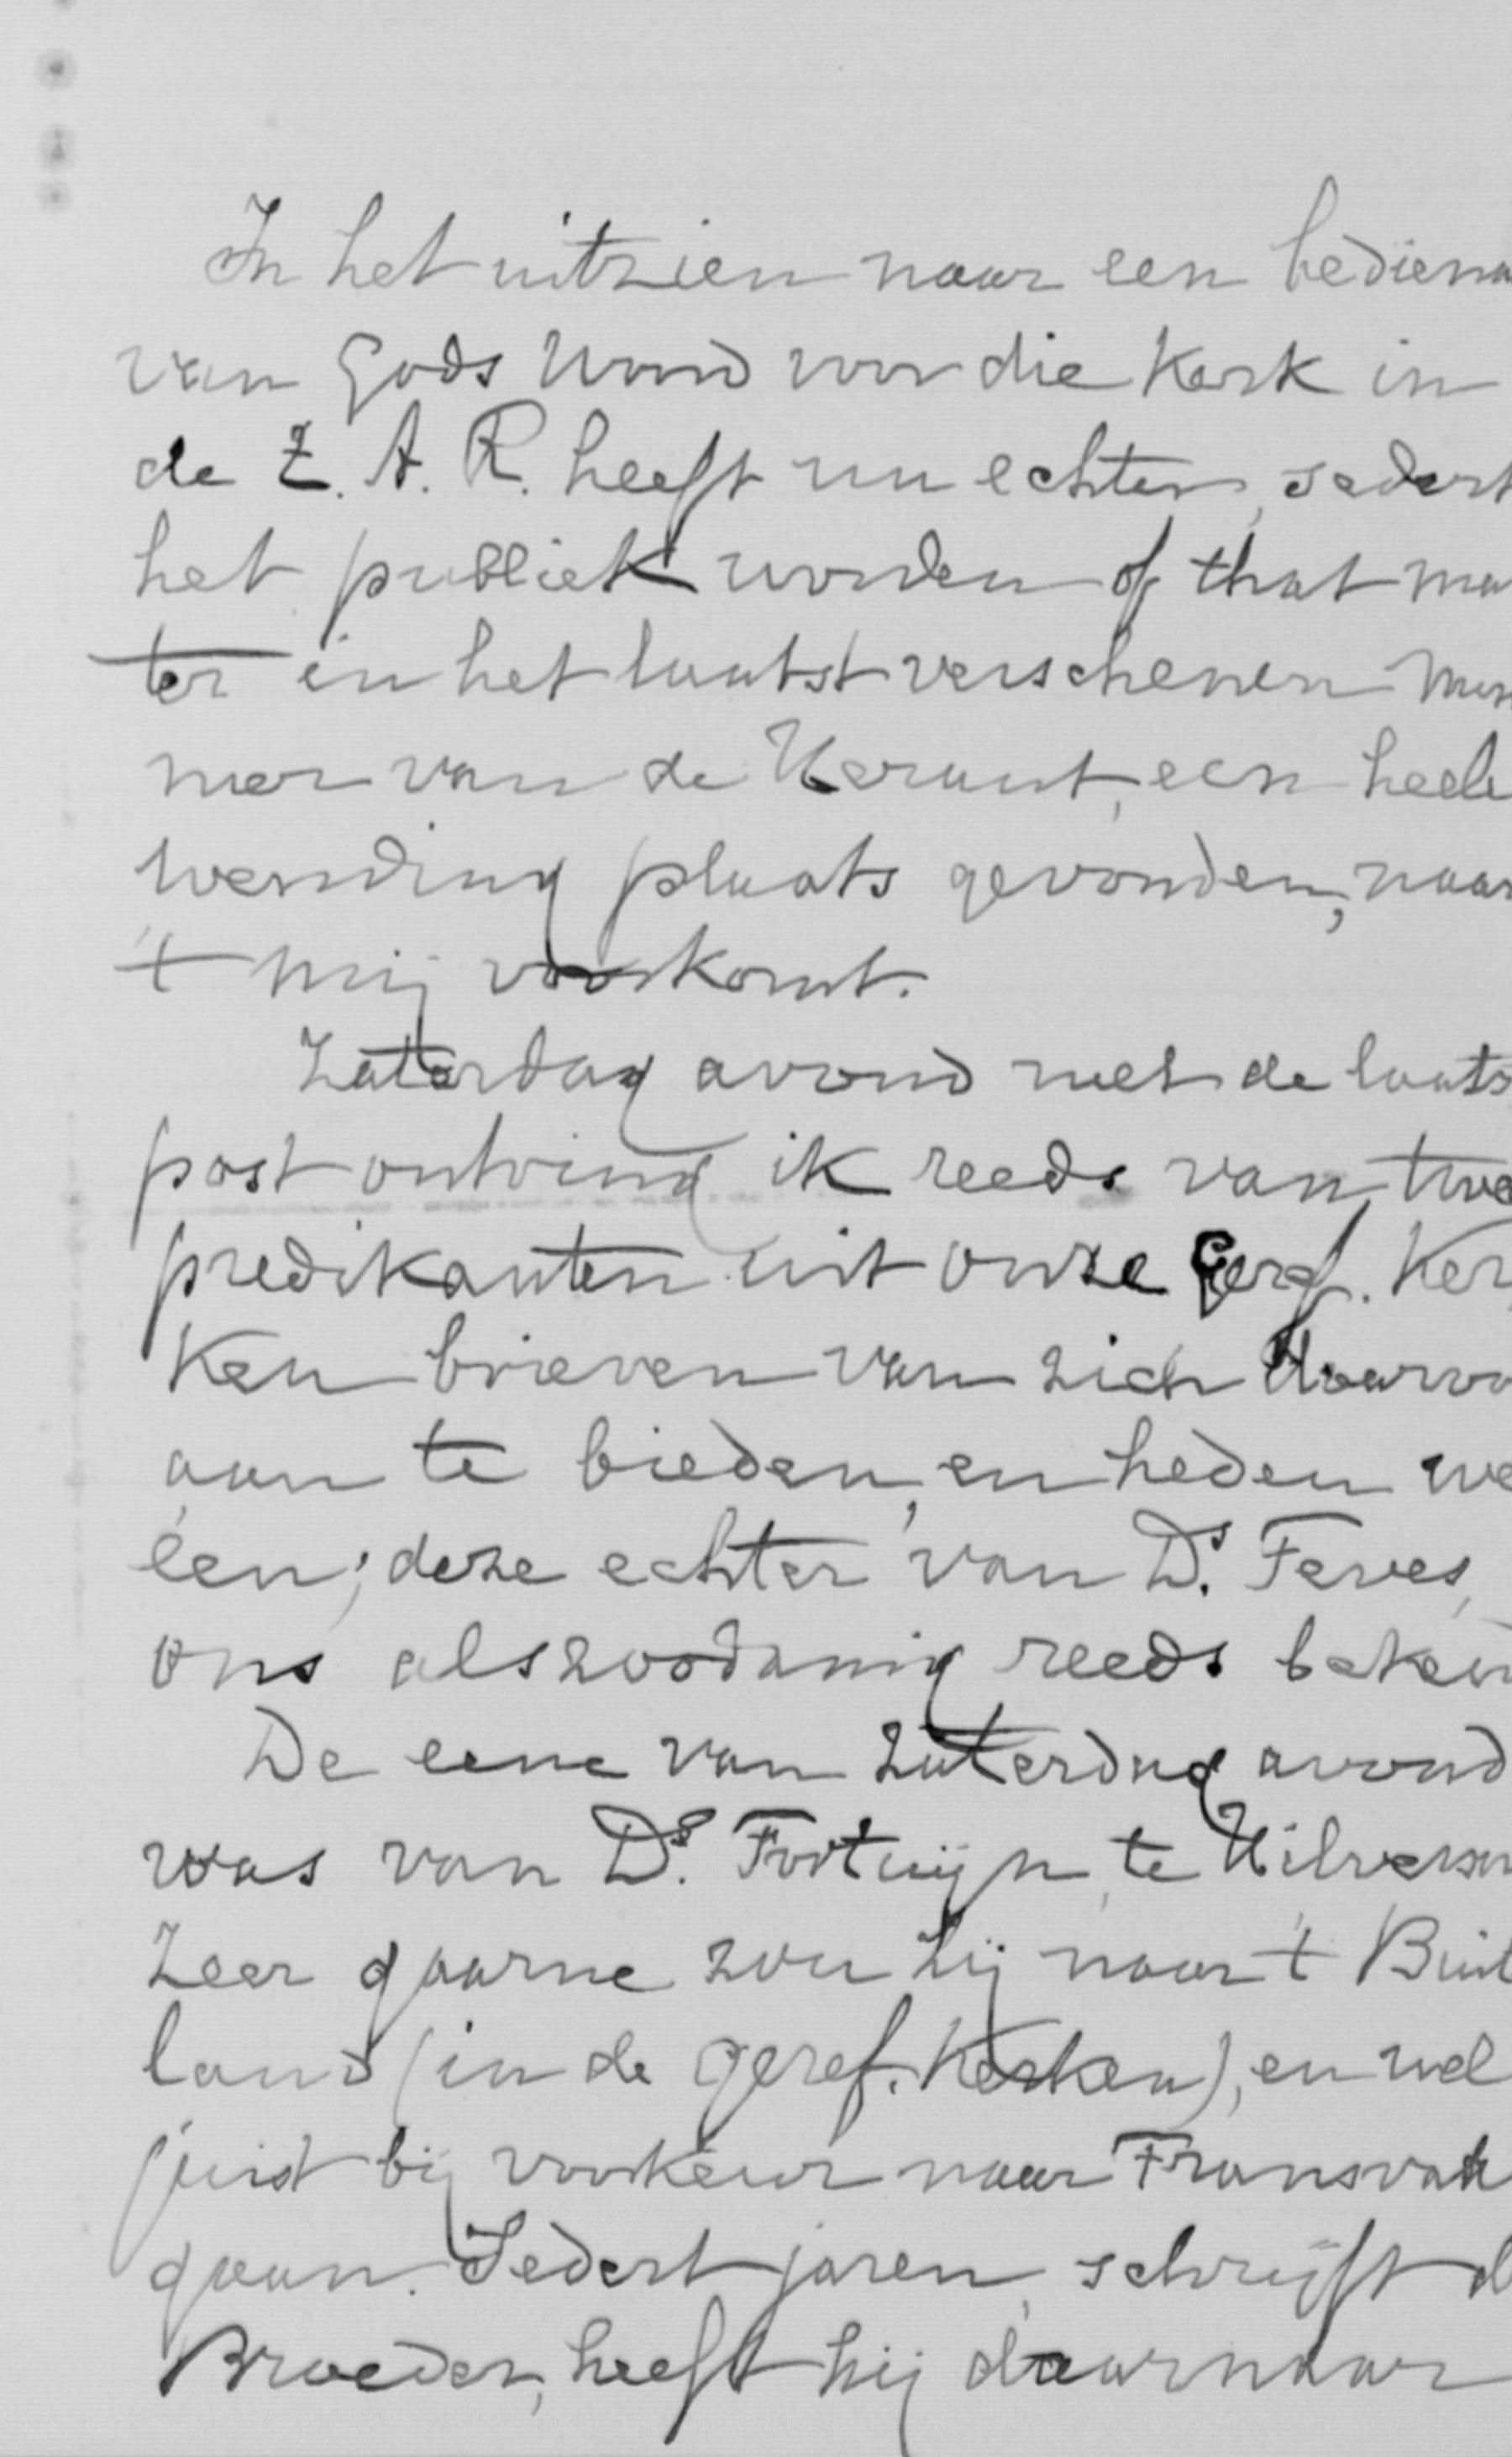 In het uitzien naar een bediena
van Gods Woord voor die Kerk in
de Z. A. R. heeft nu echter, sedert
het publiek worden of that ma
ter in het laatst verschenen num
mer van de Heraut, een heele
wending plaats gevonden, naar
't mij voorkomt.
Zaterdag avond met de laats
post ontving ik reeds van twe
predikanten uit onze Geref. Ker
ken brieven van zich daarvo
aan te bieden, en heden we
één; deze echter van Ds. Feres,
ons alszoodanig reeds beken
De eene van Zaterdag avond
was van Ds. Fortuijn te Hilversum
Zeer gaarne zou hij naar 't Buit
land (in de geref. Kerken), en wel
juist bij voorkeur naar Transvaal
gaan. Sedert jaren, schrijft d
Broeder, heeft hij daarnaar